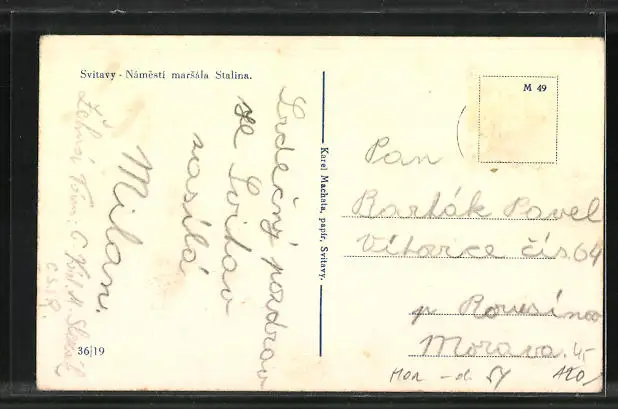 Svitavy - Náměstí maršála Stalina.
M 49
Srdečný pozdrav
ze Svitav
zasílá
Milan.
Karel Machata, papír, Svitavy.
Pan
Barták Pavel
Vítovice čís. 64
p. Rousínov
Morava.
36/19